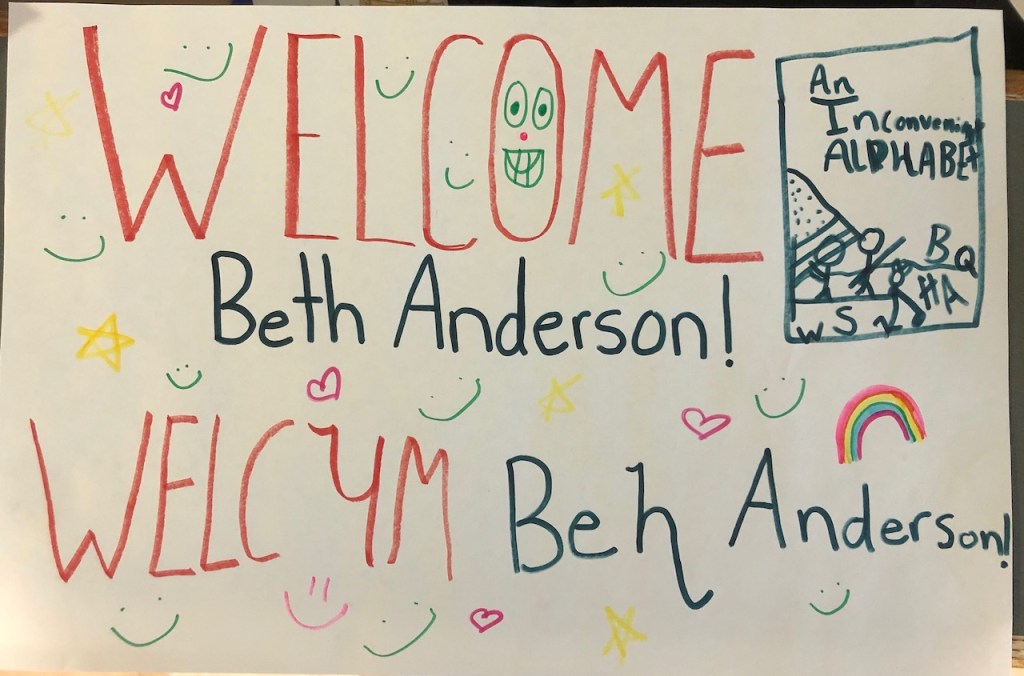 WELCOME
Beth Anderson!
An
Inconvenient
ALPHABET
B Q
HA
W S
WELCɥM Beɧ Anderson!